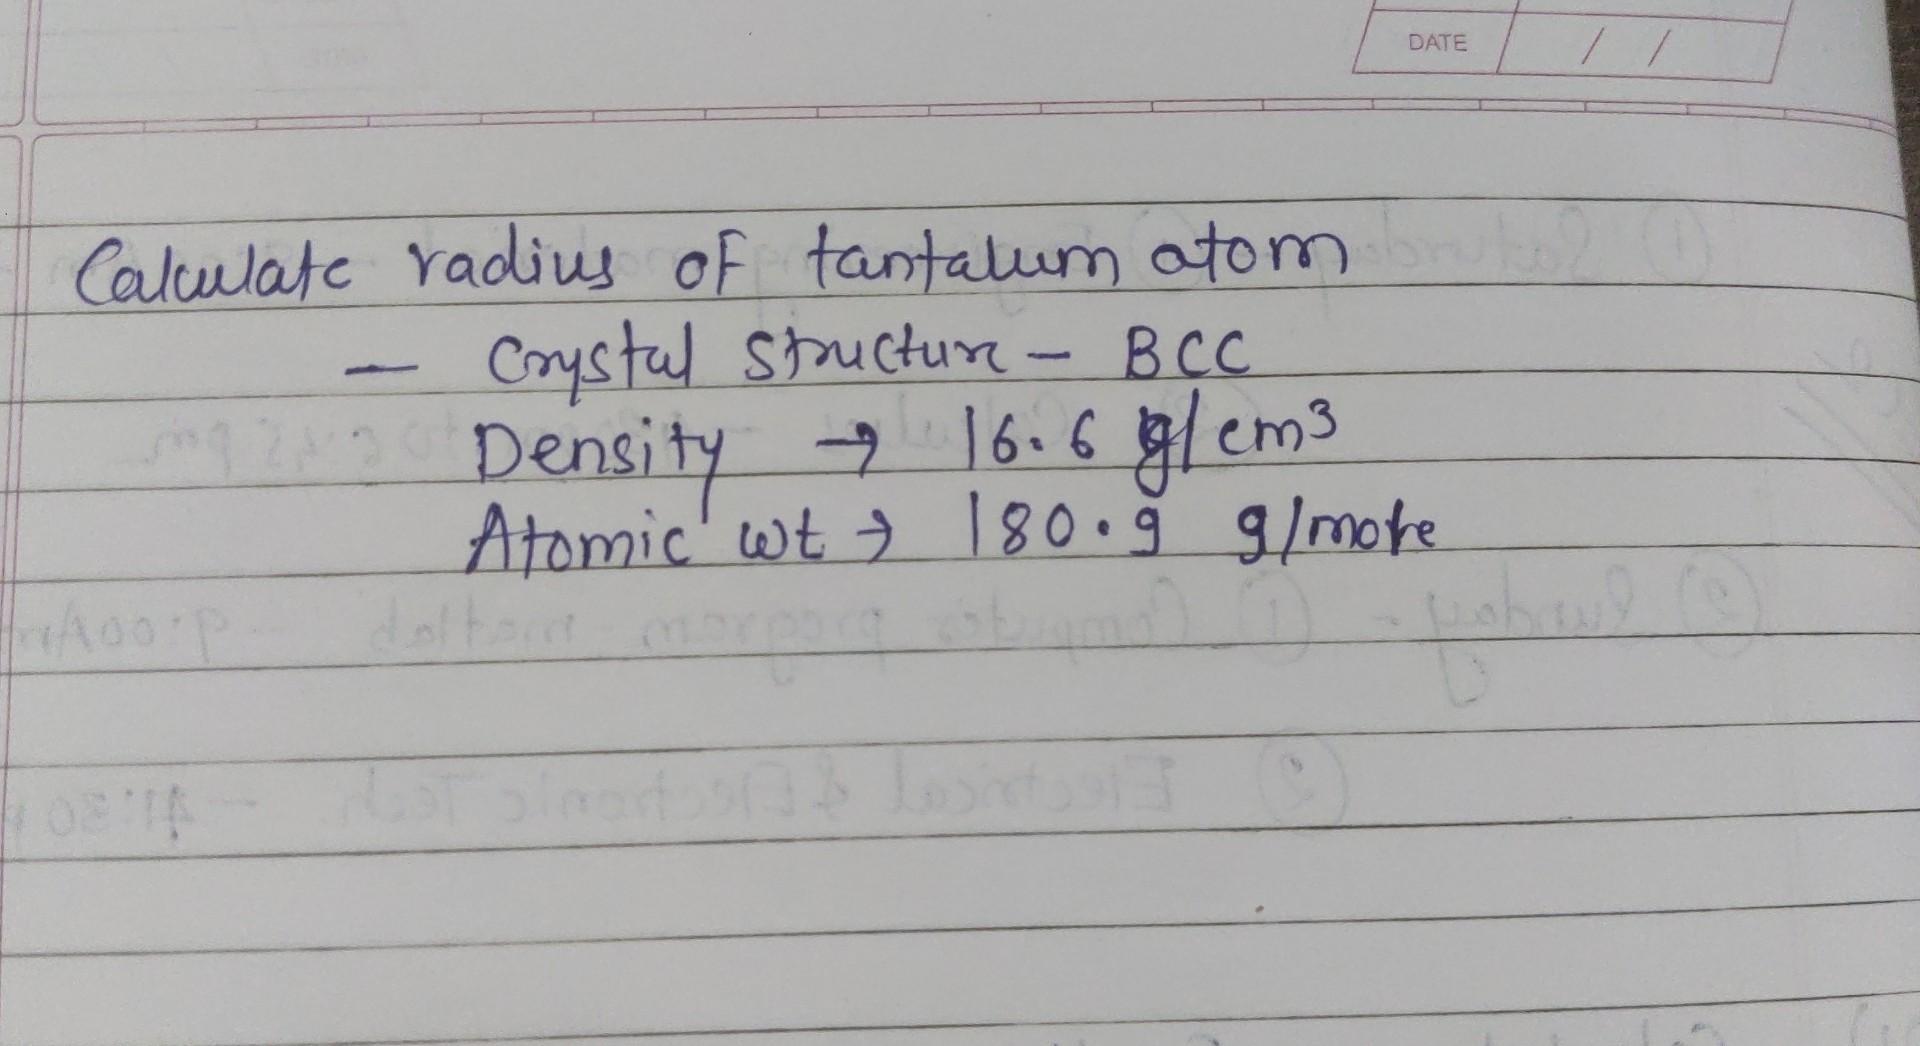 DATE / /
Calculate radius of tantalum atom
— Crystal structure – BCC
Density → 16.6 g/cm3
Atomic wt → 180.9 g/mole